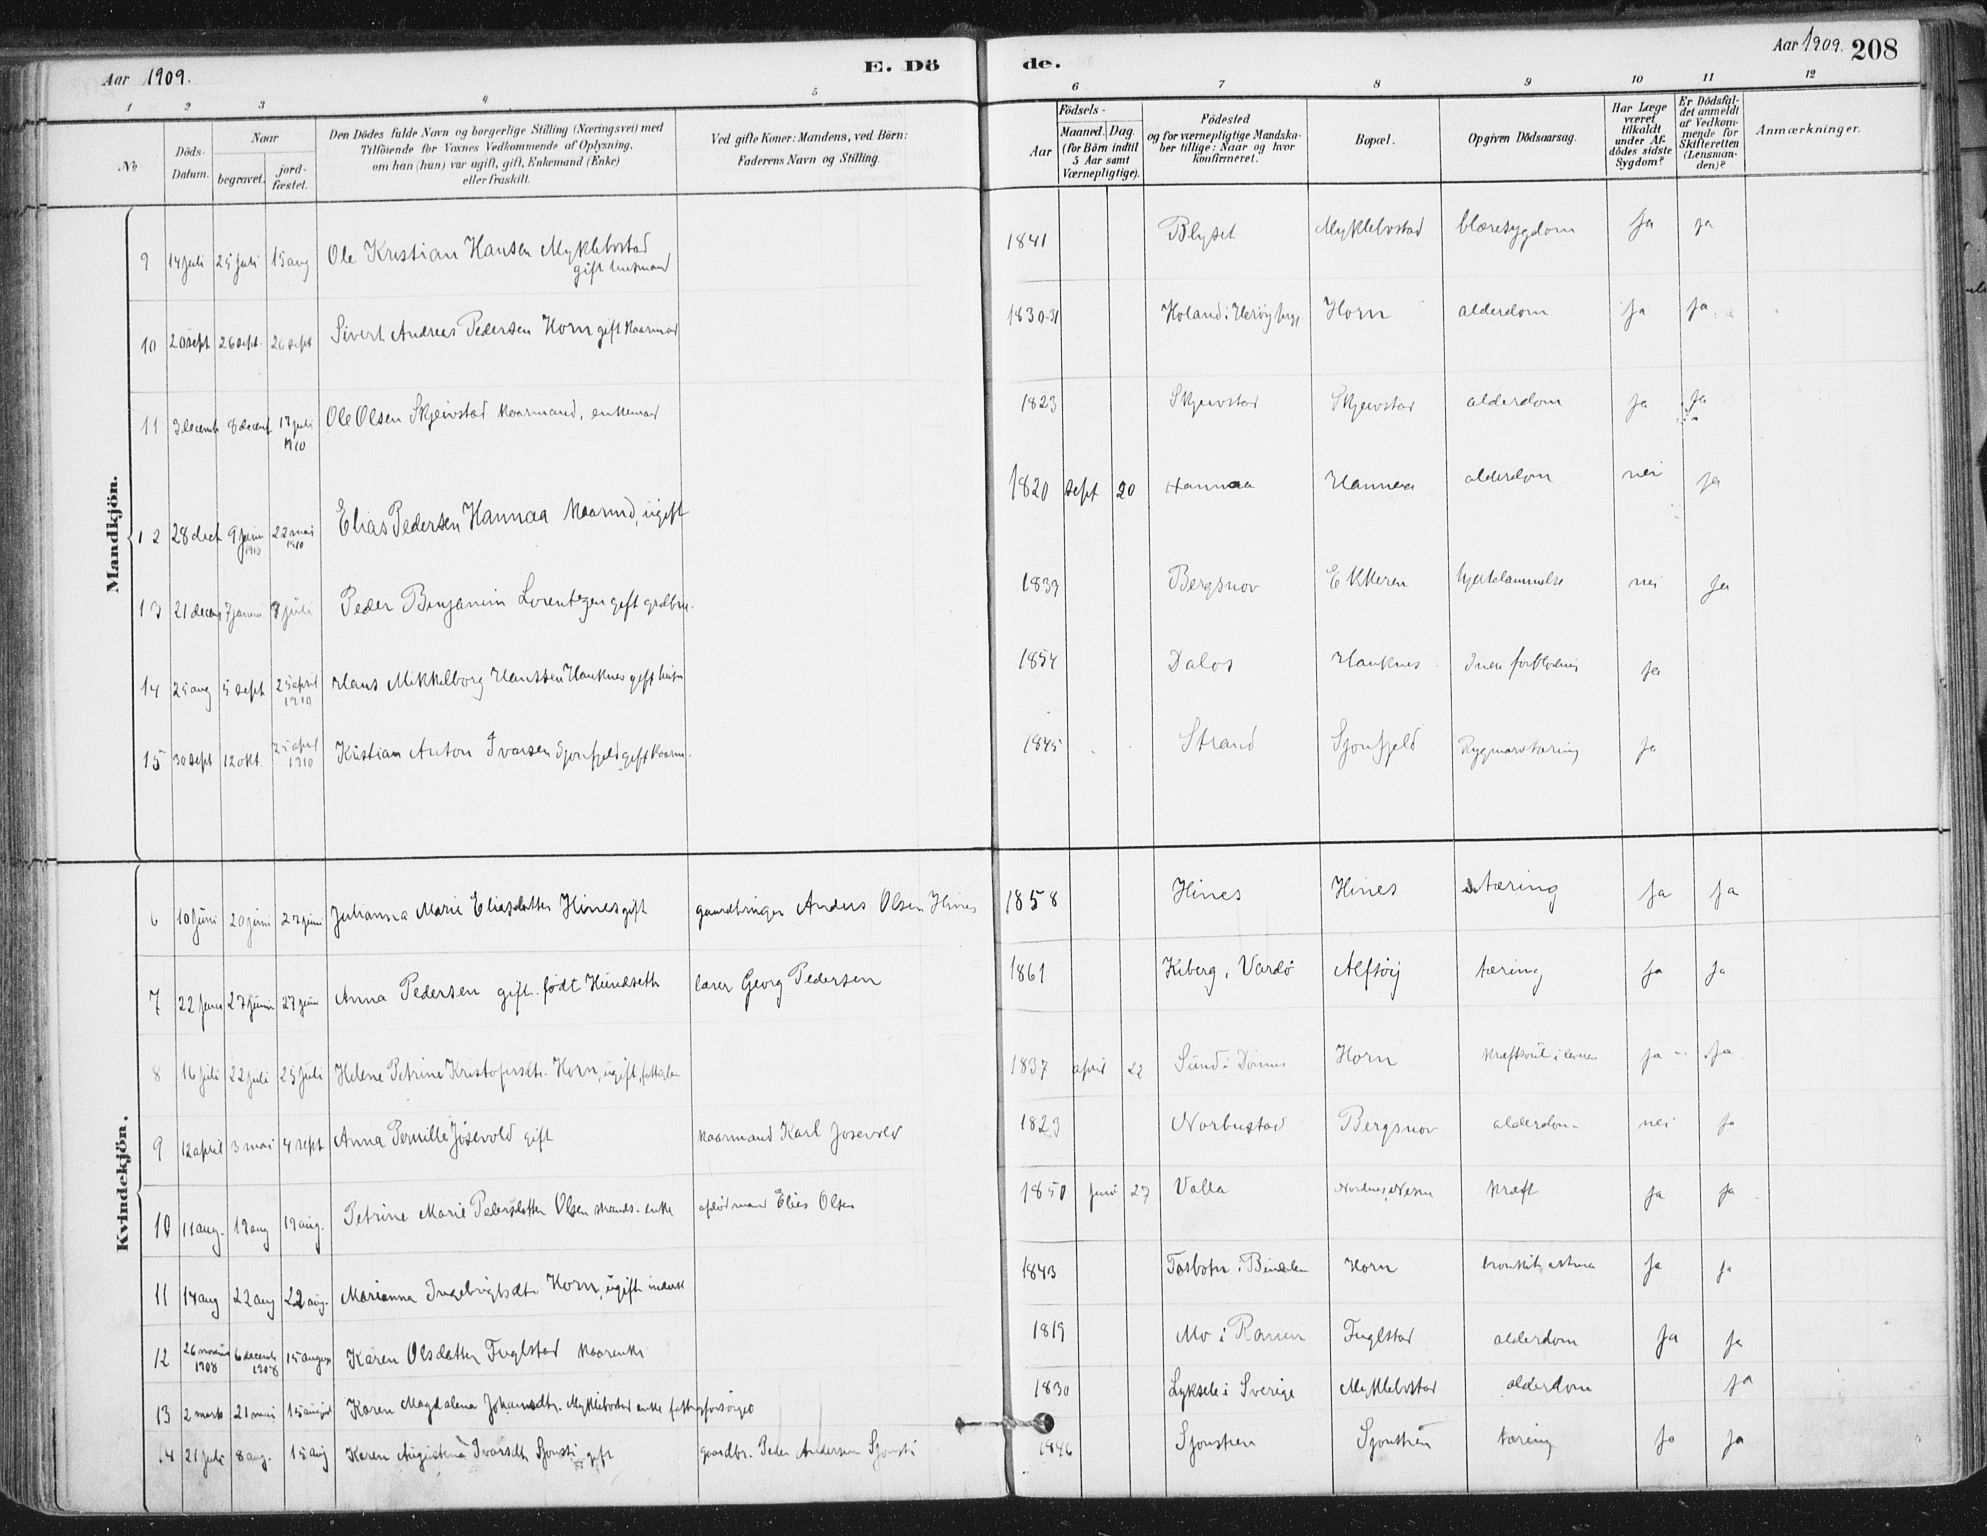 Aar 1909.
E. Dö
de.
Aar 1909. 208
1 2 3 4 5 6 7 8 9 10 11 12
No
Döds-Datum.
Naar
begravet.
jord-fæstet.
Den Dödes fulde Navn og borgerlige Stilling (Næringsvei) med
Tilföiende for Voxnes Vedkommende af Oplysning,
om han (hun) var ugift, gift, Enkemand (Enke)
eller fraskilt.
Ved gifte Koner: Mandens, ved Börn:
Faderens Navn og Stilling.
Födsels-
Aar
Maaned. Dag.
(for Börn indtil
5 Aar samt
Værnepligtige).
Födested
og for værnepligtige Mandska-
ber tillige: Naar og hvor
konfirmeret.
Bopæl.
Opgiven Dödsaarsag.
Har Læge
været
tilkaldt
under Af-
dödes sidste
Sygdom?
Er Dödsfal-
det anmeldt
af Vedkom-
mende for
Skifteretten
(Lensman-
den)?
Anmærkninger.
Mandkjön.
9 14 juli 25 juli 15 aug Ole Kristian Hansen Myklebostad 1841 Blyset Myklebostad blæresygdom ja ja
gift husmand
10 20 sept 26 sept. 26 sept Sivert Andreas Pedersen Horn gift 1830-31 Holand i Herøy Horn alderdom ja ja
11 3 decemb 8 decemb 17 juli 1910 Ole Olsen Skjeivstad kaarmand, enkemand 1823 Skjeivstad Skjeivstad alderdom ja ja
12 28 dec 9 1910 22 mai 1910 Elias Pedersen Hannaa ugift 1820 sept 20 Hannaa Hannaa alderdom nei ja
13 21 7 8 juli Peder Benjamin Lorentzen gift 1839 Bergsnov Ekkeren hjertelammelse nei ja
14 25 aug 5 sept 25 april 1910 Hans Mikkelborg Hanssen Hauknes gift 1854 Dalos Hauknes ja
15 30 sept 12 okt. 25 april 1910 Kristian Anton Ivarsen Sjonfjeld gift kaarm. 1845 Strand Sjonfjeld Rygmarvtæring ja
Kvindekjön.
6 10 juni 20 juni 27 juni Julianna Marie Eliasdatter Hines gift gaardbruger Anders Olsen Hines 1858 Hines Hines tæring ja ja
7 22 juni 27 juni 27 juni Anna Pedersen gift. født Hundseth lærer Georg Pedersen 1861 Kiberg, Vardö tæring ja ja
8 16 juli 22 juli 25 juli Helene Petrine Kristofersdtr. Horn, ugift, 1837 april 22 Sund i Dönnes Horn ja ja
9 12 april 3 mai 4 sept Anna Pernille Jösevold gift kaarmand Karl Josevold 1823 Norbustad Bergsnov alderdom nei ja
10 11 aug. 19 aug 19 aug. Petrine Marie Pedersdatter Olsen enke Elias Olsen 1850 juni 27 Valla Nordnes, Nesna kræft ja ja
11 14 aug 22 aug 22 aug. Marianna Ingebrigtsdtr Horn, ugift 1843 Tosbotn i Bindalen Horn bronkit, astma ja ja
12 26 1908 6 decemb 1908 15 august Karen Olsdatter Fuglstad kaarenke 1819 Mo i Ranen Fuglstad alderdom ja ja
13 2 mars 21 mai 15 august Karen Magdalena Johansdtr. Myklebostad enke 1830 Lyksele i Sverige Myklebostad alderdom ja
14 21 juli 8 aug. 15 aug Karen Augustena Ivarsdtr gift gaardbr. Peder Andersen 1846 tæring ja ja